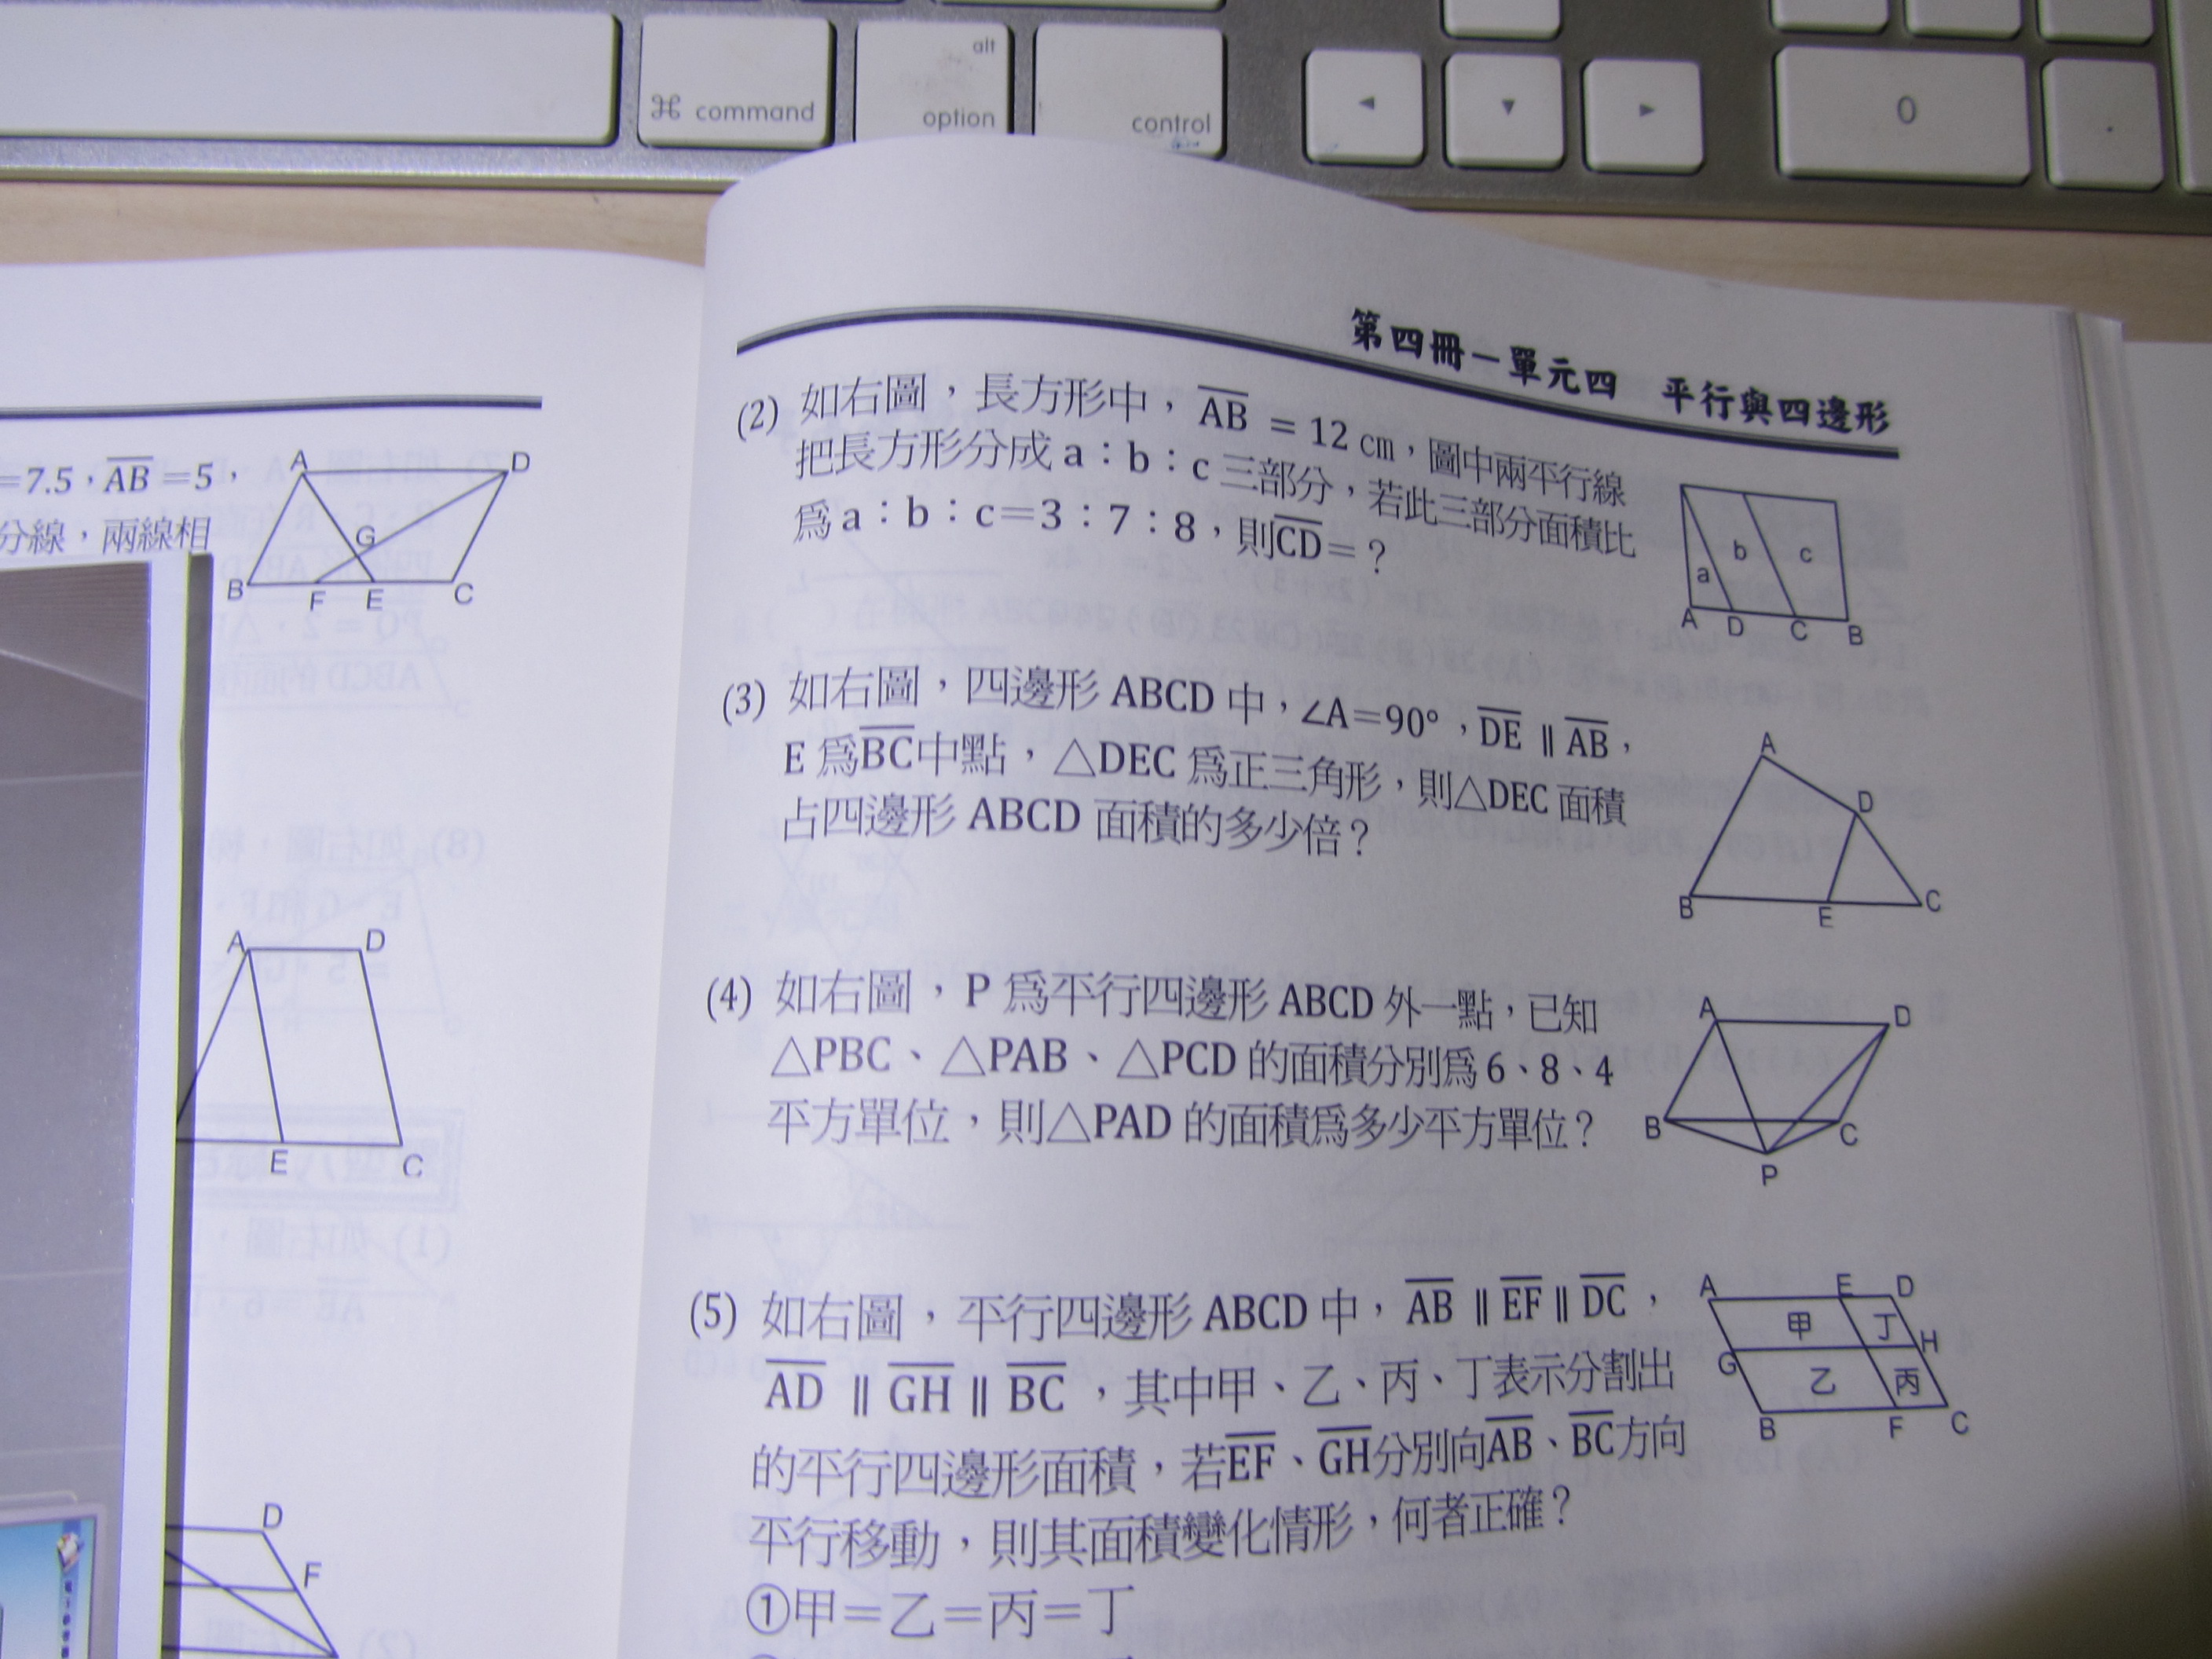 alt
⌘ command
option
control
◀
▼
▶
0
.
=7.5，AB=5，
分線，兩線相
A
D
G
B
F
E
C
A
D
E
C
D
F
第四冊－單元四 平行與四邊形
(2) 如右圖，長方形中，AB = 12 cm，圖中兩平行線
把長方形分成 a：b：c 三部分，若此三部分面積比
爲 a：b：c＝3：7：8，則CD＝？
b
c
a
A
D
C
B
(3) 如右圖，四邊形 ABCD 中，∠A＝90°，DE ∥ AB，
E 爲BC中點，△DEC 爲正三角形，則△DEC 面積
占四邊形 ABCD 面積的多少倍？
A
D
B
E
C
(4) 如右圖，P 爲平行四邊形 ABCD 外一點，已知
△PBC、△PAB、△PCD 的面積分別爲 6、8、4
平方單位，則△PAD 的面積爲多少平方單位？
A
D
B
C
P
(5) 如右圖，平行四邊形 ABCD 中，AB ∥ EF ∥ DC，
AD ∥ GH ∥ BC，其中甲、乙、丙、丁表示分割出
的平行四邊形面積，若EF、GH分別向AB、BC方向
平行移動，則其面積變化情形，何者正確？
①甲＝乙＝丙＝丁
A
E
D
甲
丁
H
G
乙
丙
B
F
C